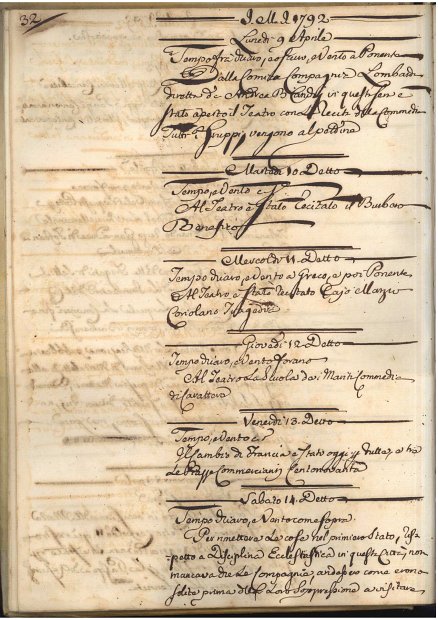 32
J. M. J. 1792
Lunedì 9 Aprile
Tempo fra chiaro, e Vento a Ponente
dalla Comica Compagnia Lombarda
diretta da Andrea Bianchi in questa sera è
stato aperto il Teatro con Recita della Commedia
Tutti i Gruppi vengono al pettine
Martedì 10. Detto
Tempo, e Vento
Al Teatro è stato recitato il Burbero
Benefico
Mercoldì 11. Detto
Tempo chiaro, e Vento a Greco, e poi Ponente
Al Teatro è stato recitato Cajo Marzio
Coriolano Tragedia
Giovedì 12. Detto
Tempo chiaro, e Vento forano
Al Teatro La Scuola dei Mariti Commedia
di Carattere
Venerdì 13. Detto
Tempo, e Vento
Il Cambio di Francia è stato oggi per tutte, e tre
Le Piazze Commercianti Centonovanta
Sabato 14. Detto
Tempo chiaro, e Vento come sopra
Per rimettere Le cose nel primiero Stato, rispetto
a Disciplina Ecclesiastica in queste Città, non
mancava che Le Compagnie andassero come erano
solite prima della Loro Soppressione a visitare